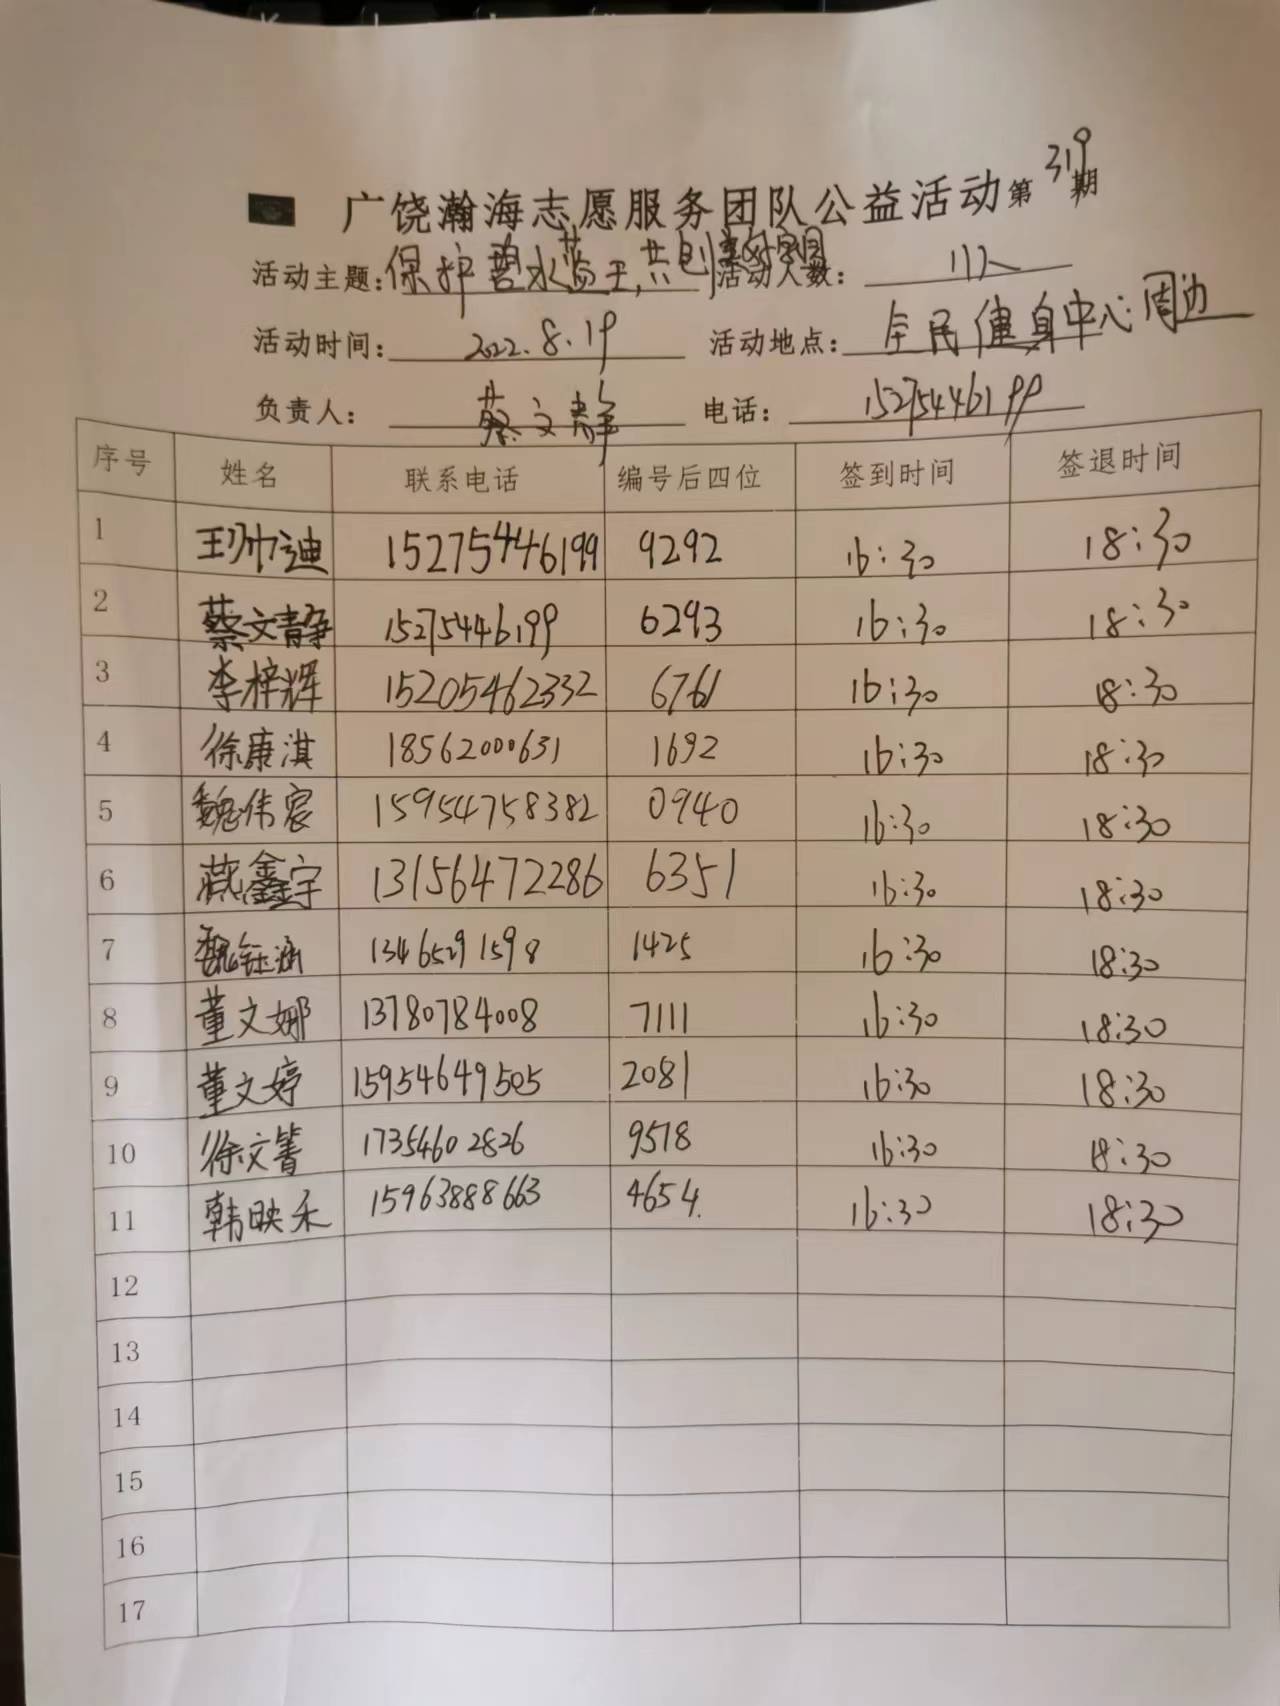 广饶瀚海志愿服务团队公益活动第319期
活动主题:保护碧水蓝天,共创美好家园 活动人数: 11人
活动时间: 2022.8.19 活动地点: 全民健身中心周边
负责人: 蔡文静 电话: 15275446199
序号 姓名 联系电话 编号后四位 签到时间 签退时间
1 15275446199 9292 16:30 18:30
2 蔡文静 15275446199 6293 16:30 18:30
3 李梓辉 15205462332 6761 16:30 18:30
4 徐康淇 18562000631 1692 16:30 18:30
5 魏伟宸 15954758382 0940 16:30 18:30
6 鑫宇 13156472286 6351 16:30 18:30
7 魏钰涵 13465291598 1425 16:30 18:30
8 董文娜 13780784008 7111 16:30 18:30
9 董文婷 15954649505 2081 16:30 18:30
10 徐文箐 17354602826 9578 16:30 18:30
11 韩映禾 15963888663 4654. 16:30 18:30
12
13
14
15
16
17